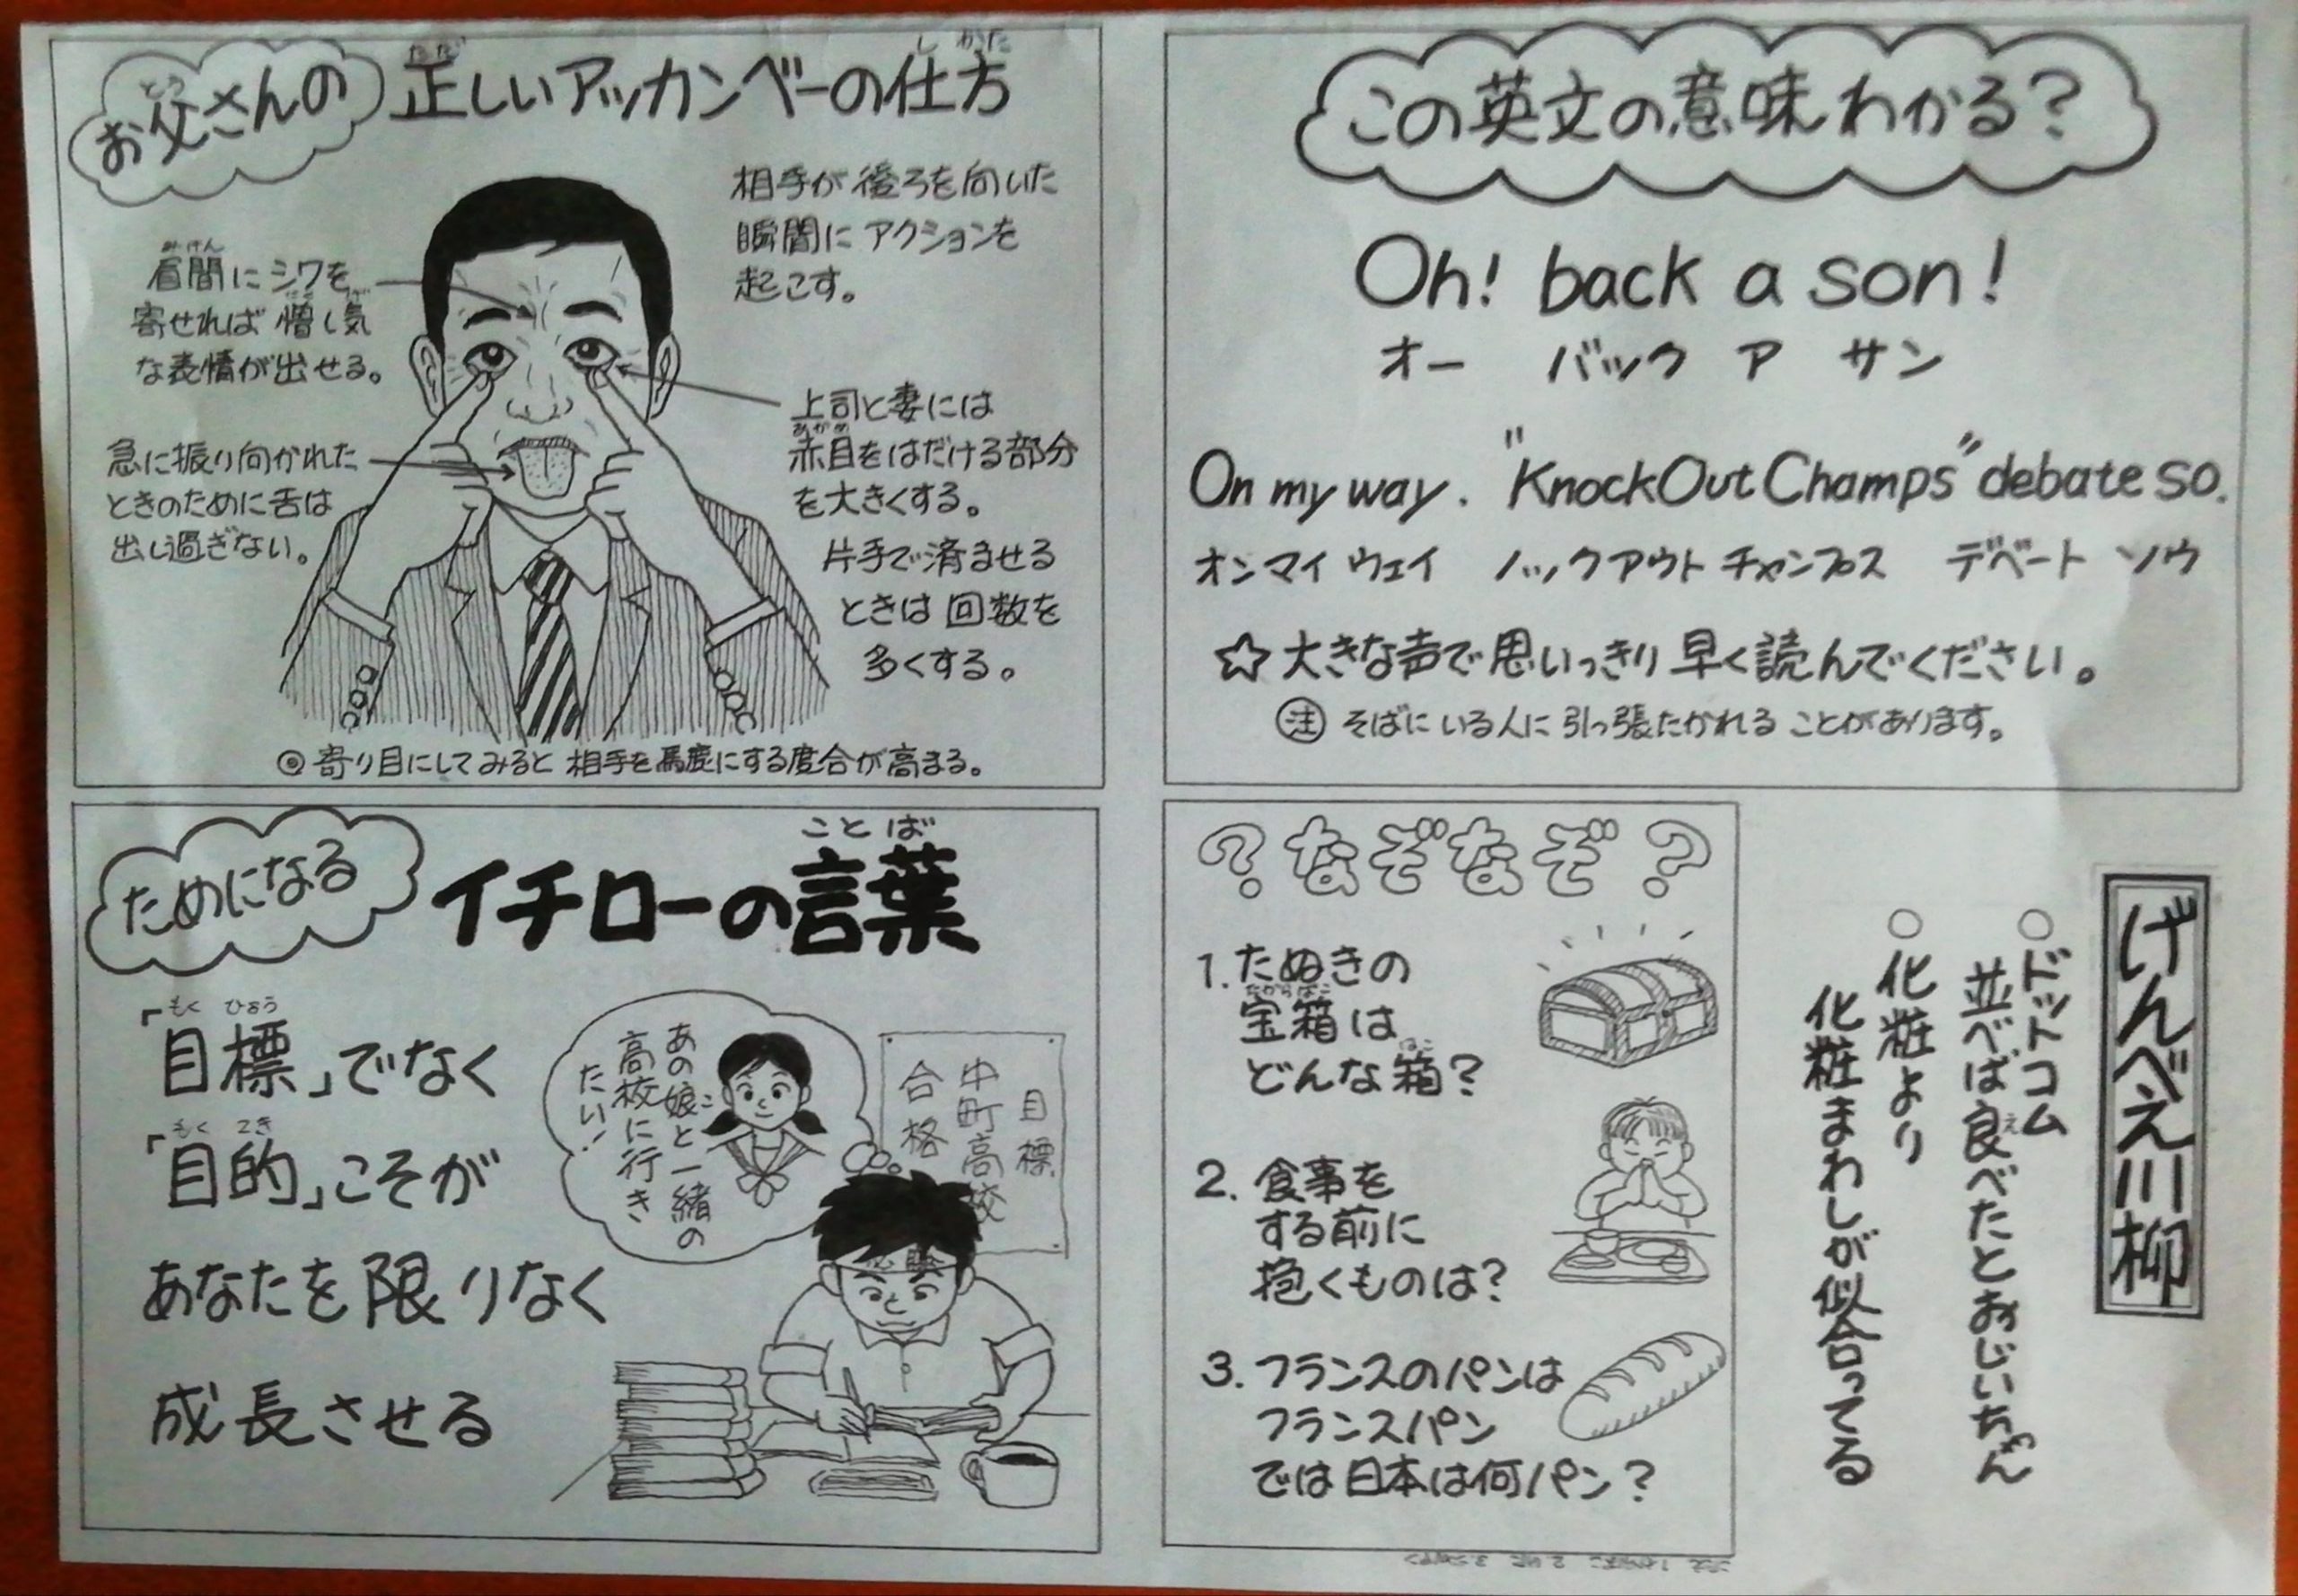 お父さんの
正しいアッカンベーの仕方
相手が後ろを向いた
瞬間にアクションを
起こす。
眉間にシワを
寄せれば憎し気
な表情が出せる。
上司と妻には
赤目をはだける部分
を大きくする。
片手で済ませる
ときは回数を
多くする。
急に振り向かれた
ときのために舌は
出し過ぎない。
◎寄り目にしてみると相手を馬鹿にする度合が高まる。
この英文の意味わかる?
Oh! back a son!
オー バック ア サン
On my way. "KnockOut Champs" debate so.
オンマイウェイ ノックアウトチャンプス デベート ソウ
☆大きな声で思いっきり早く読んでください。
注 そばにいる人に引っ張たかれることがあります。
ためになる
イチローの言葉
「目標」でなく
「目的」こそが
あなたを限りなく
成長させる
あの娘と一緒の
高校に行き
たい!
目標
中町高校
合格
?なぞなぞ?
1.たぬきの
宝箱は
どんな箱?
2.食事を
する前に
抱くものは?
3.フランスのパンは
フランスパン
では日本は何パン?
げんべえ川柳
○ドットコム
並べば良べたとおじいちゃん
○化粧より
化粧まわしが似合ってる